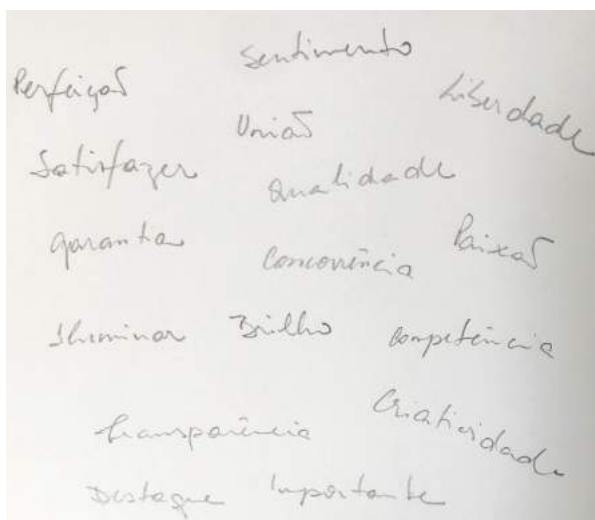 Sentimento
Perfeição Liberdade
União
Satisfazer Qualidade
garantia Concorrência Paixão
Iluminar Brilho Competência
Transparência Criatividade
Destaque Importante